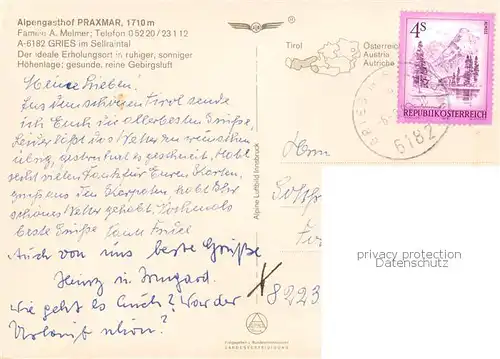 Alpengasthof PRAXMAR, 1710 m
Familie A. Melmer; Telefon 0 52 20 / 23 1 12
A-6182 GRIES im Sellraintal
Der ideale Erholungsort in ruhiger, sonniger
Höhenlage; gesunde, reine Gebirgsluft
Meine Lieben!
Aus dem schönen Tirol sende
ich Euch die allerbesten Grüße.
Leider läßt das Wetter zu wünschen
übrig, gestern hat es geschneit. Habt
recht vielen Dank für Euren Karten-
gruß aus den Karpaten habt Ihr
schönes Wetter gehabt. Nochmals
beste Grüße
Auch von uns beste Grüße
Heinz u. Irmgard.
Wie geht es Euch? War der
Urlaub schön?
Alpine Luftbild Innsbruck
Tirol
Österreich
Austria
Autriche
4 S
REPUBLIK ÖSTERREICH
GRIES
6182
Herrn
8223
privacy protection
Datenschutz